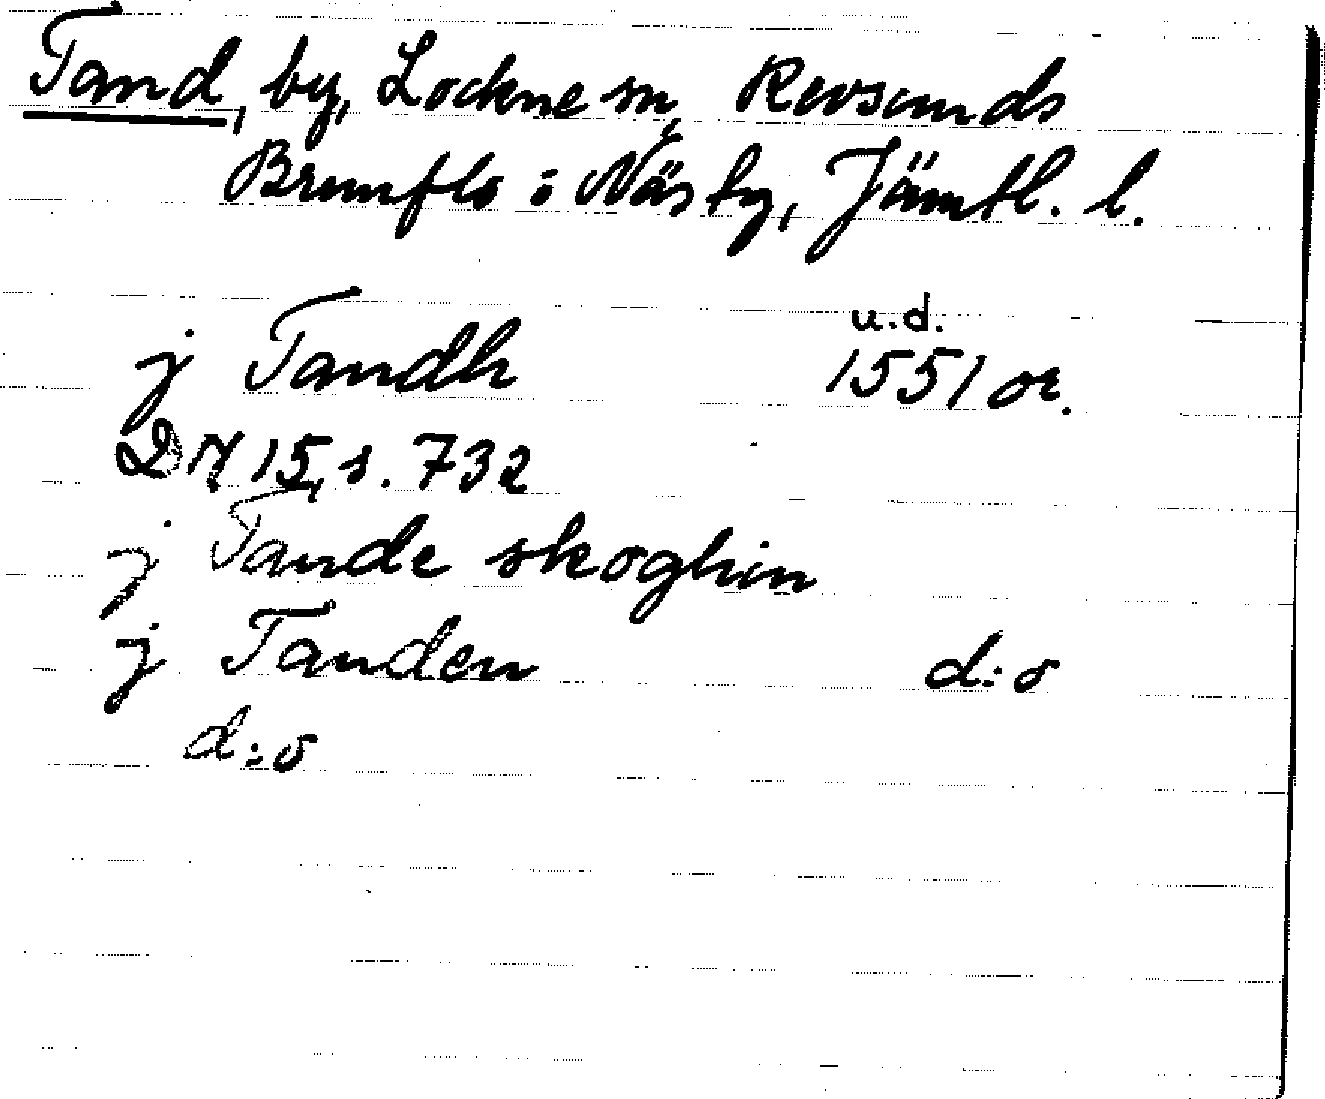 Tand, by, Lockne sn, Revsunds
Brunflo o Näs tg, Jämtl. l.
u.d.
j Tandh 1551 or.
DN 15, s. 732
j Tande skoghin
j Tanden d:o
d:o